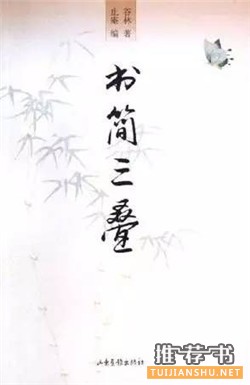 谷林 著
止庵 编
书简三叠
山东画报出版社
推荐书
TUIJIANSHU.NET